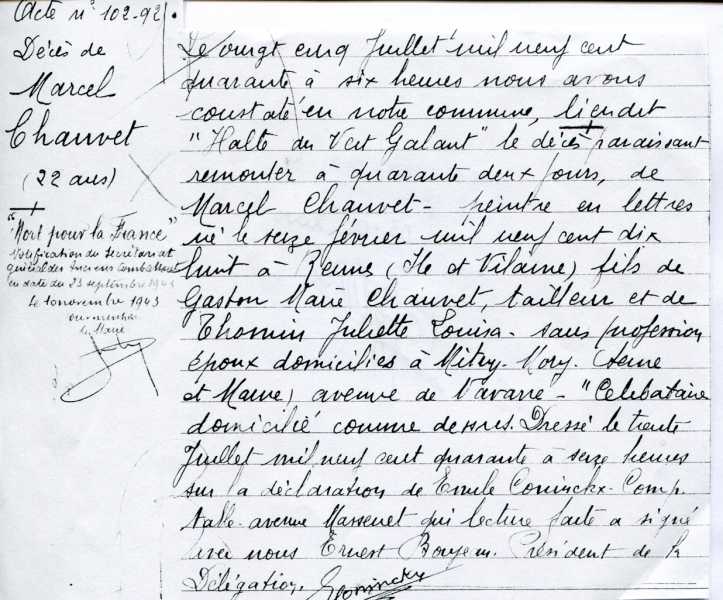 Acte n° 102-92
Décès de
Marcel
Chauvet
(22 ans)
"Mort pour la France"
Notification du Secrétariat
général des Anciens Combattants
en date du 23 septembre 1943
le 10 novembre 1943
le Maire
Le vingt cinq Juillet mil neuf cent
quarante à six heures nous avons
constaté en notre commune, lieudit
"Halte du Vert Galant" le décès paraissant
remonter à quarante deux jours, de
Marcel Chauvet - peintre en lettres
né le seize février mil neuf cent dix
huit à Rennes (Ile et Vilaine) fils de
Gaston Marie Chauvet, tailleur et de
Thomin Juliette Louisa - sans profession
époux domiciliés à Mitry-Mory (Seine
et Marne) avenue de Navarre - "Célibataire
domicilié comme dessus. Dressé le trente
Juillet mil neuf cent quarante à seize heures
sur la déclaration de Emile Coninckx - Comp
table - avenue Massenet qui lecture faite a signé
avec nous Ernest Président de la
Délégation. Coninckx